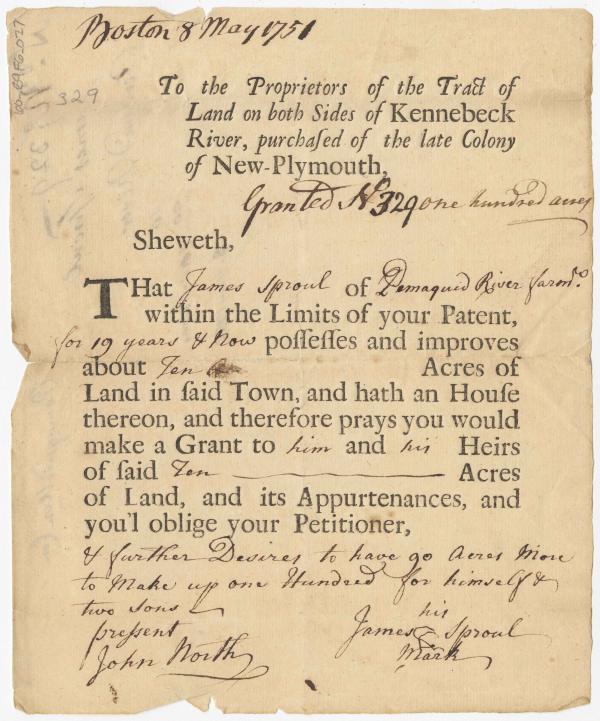 Boston 8 May 1751
329
To the Proprietors of the Tract of
Land on both Sides of Kennebeck
River, purchaſed of the late Colony
of New-Plymouth,
Granted No 329 one hundred acres
Sheweth,
THat James Sproul of Pemaquid River farmr.
within the Limits of your Patent,
for 19 years & Now poſſeſſes and improves
about Ten Acres of
Land in ſaid Town, and hath an Houſe
thereon, and therefore prays you would
make a Grant to him and his Heirs
of ſaid Ten Acres
of Land, and its Appurtenances, and
you'l oblige your Petitioner,
& further Desires to have 90 Acres More
to Make up one Hundred for himself &
two sons
pressent
his
John North
James Sproul
Mark